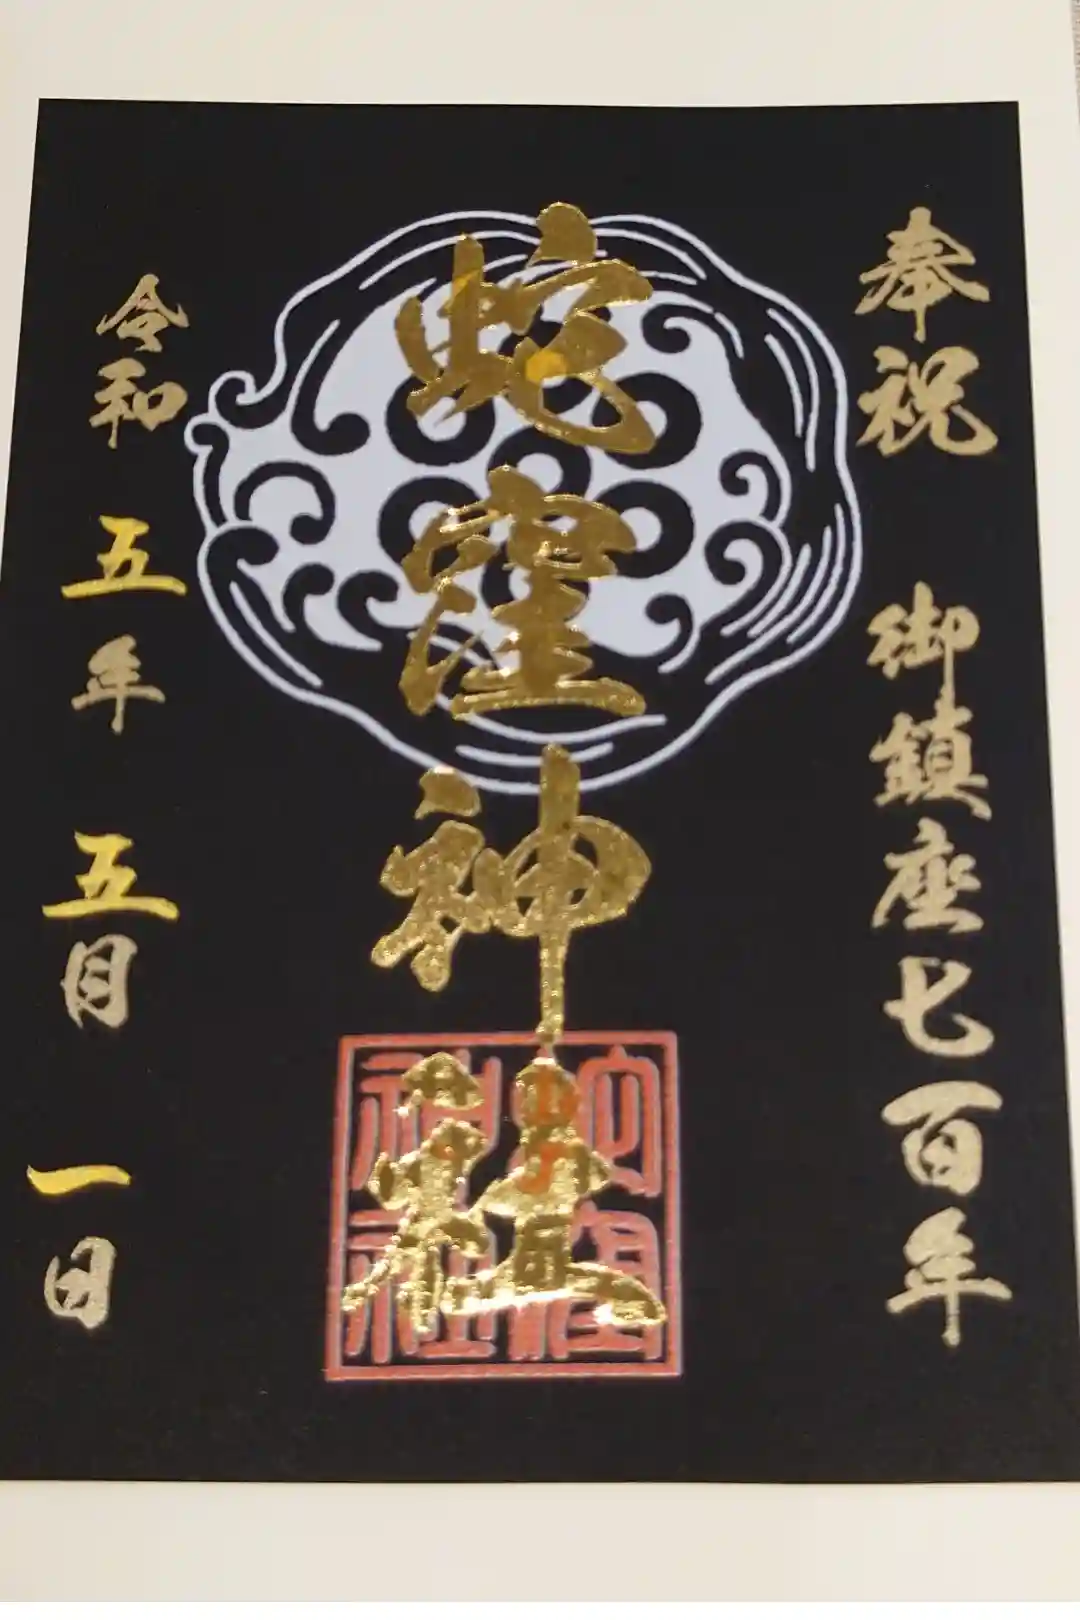 奉祝 御鎮座七百年
蛇窪神社
蛇窪
神社
令和 五年 五月 一日